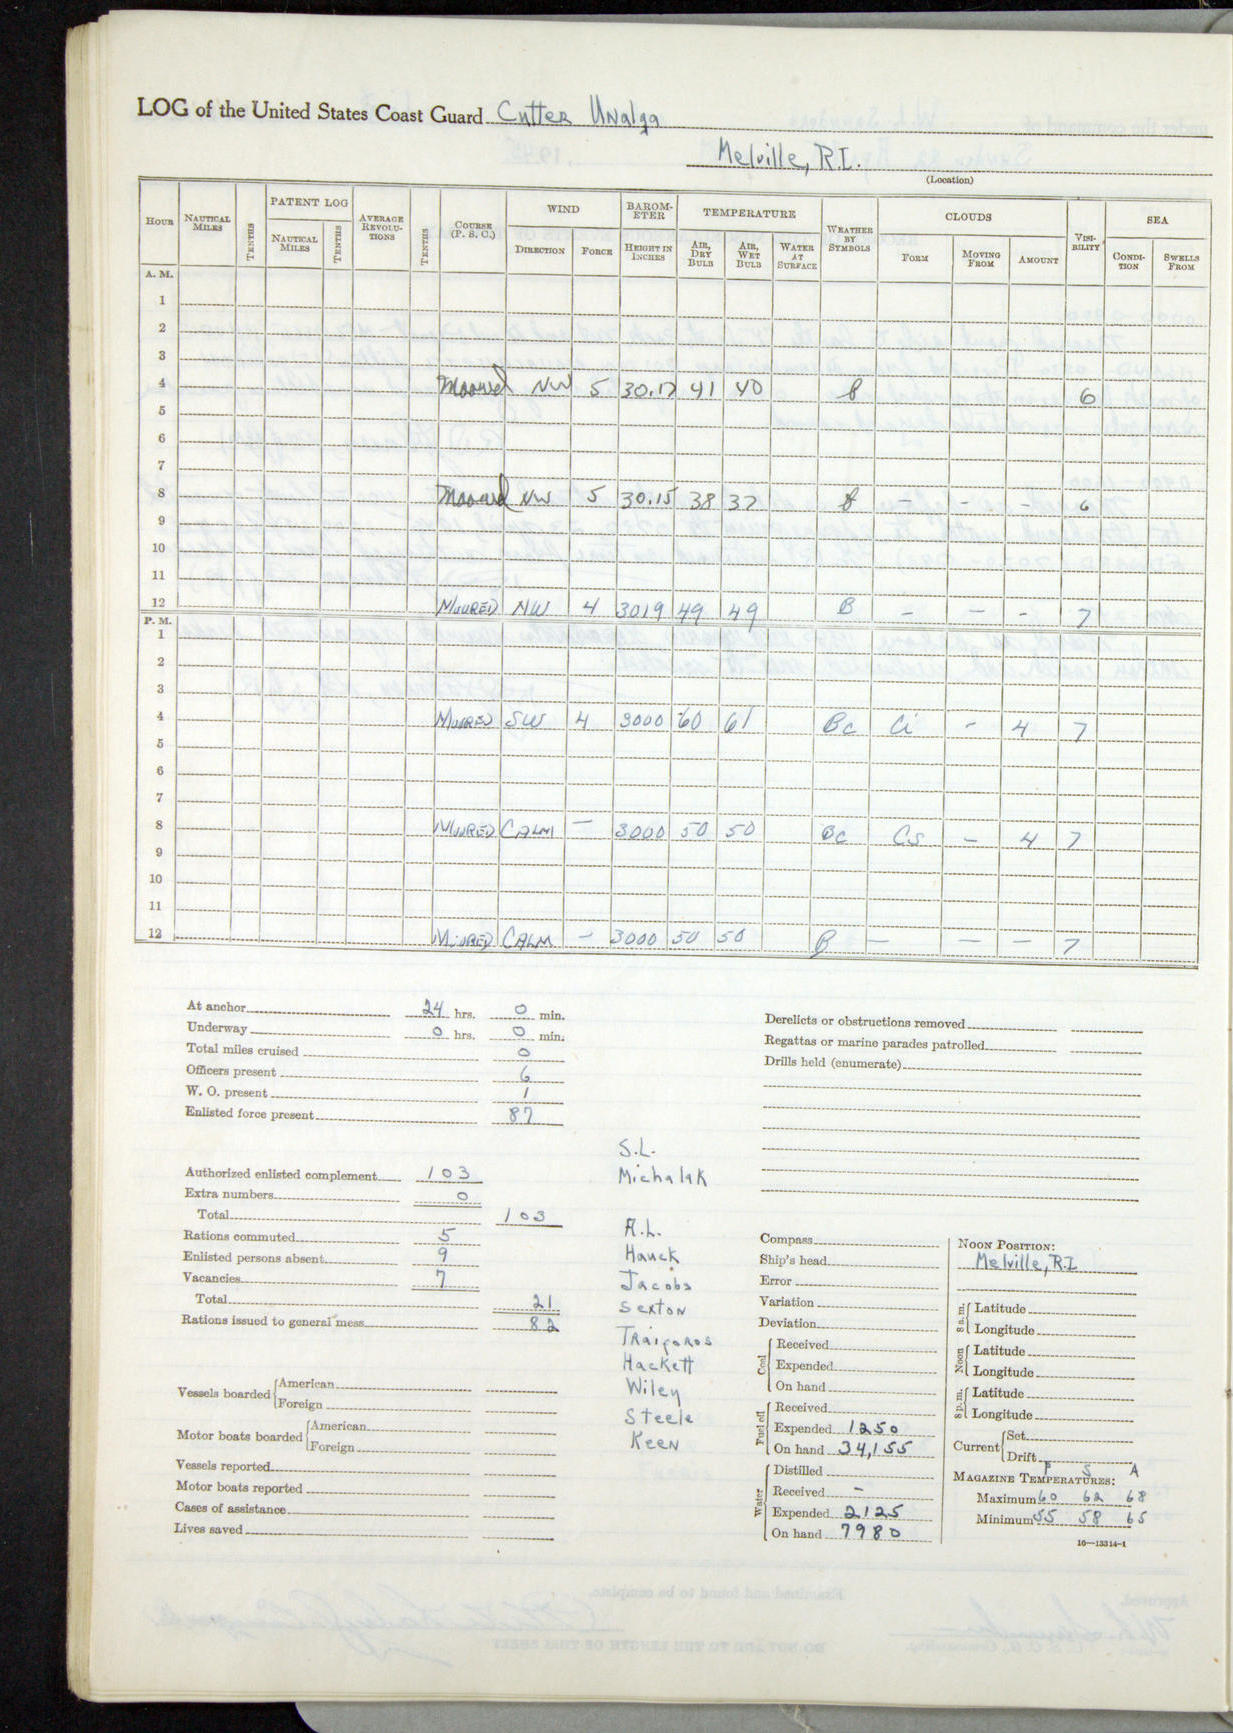 LOG of the United States Coast Guard Cutter Unalga
Melville, R.I.
(Location)
HOUR
NAUTICAL MILES
TENTHS
PATENT LOG
NAUTICAL MILES
TENTHS
AVERAGE REVOLUTIONS
TENTHS
COURSE (P. S. C.)
WIND
DIRECTION
FORCE
BAROMETER
HEIGHT IN INCHES
TEMPERATURE
AIR, DRY BULB
AIR, WET BULB
WATER AT SURFACE
WEATHER BY SYMBOLS
CLOUDS
FORM
MOVING FROM
AMOUNT
VISIBILITY
SEA
CONDITION
SWELLS FROM
A. M.
1
2
3
4 Moored NW 5 30.17 41 40 b 6
5
6
7
8 Moored NW 5 30.15 38 37 b - - - 6
9
10
11
12 MOORED NW 4 3019 49 49 B - - - 7
P. M.
1
2
3
4 MOORED SW 4 3000 60 61 Bc Ci - 4 7
5
6
7
8 MOORED CALM - 3000 50 50 Bc Cs - 4 7
9
10
11
12 MOORED CALM - 3000 50 50 B - - - 7
At anchor 24 hrs. 0 min.
Underway 0 hrs. 0 min.
Total miles cruised 0
Officers present 6
W. O. present 1
Enlisted force present 87
Authorized enlisted complement 103
Extra numbers 0
Total 103
Rations commuted 5
Enlisted persons absent 9
Vacancies 7
Total 21
Rations issued to general mess 82
Vessels boarded American
Foreign
Motor boats boarded American
Foreign
Vessels reported
Motor boats reported
Cases of assistance
Lives saved
S.L.
Michalak
A.L.
Hauck
Jacobs
Sexton
Traiforos
Hackett
Wiley
Steele
Keen
Derelicts or obstructions removed
Regattas or marine parades patrolled
Drills held (enumerate)
Compass
Ship's head
Error
Variation
Deviation
Coal
Received
Expended
On hand
Fuel oil
Received
Expended 1250
On hand 34,155
Water
Distilled
Received -
Expended 2125
On hand 7980
NOON POSITION:
Melville, R.I.
8 a.m. Latitude
Longitude
Noon Latitude
Longitude
8 p.m. Latitude
Longitude
Current Set
Drift
F S A
MAGAZINE TEMPERATURES:
Maximum 60 62 68
Minimum 55 58 65
16—13314-1